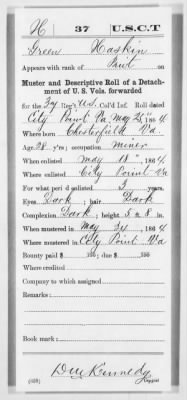 H 37 U.S.C.T
Green Haskin
Appears with rank of Privt on
Muster and Descriptive Roll of a Detach-
ment of U. S. Vols. forwarded
for the 37 Reg't U.S. Col'd Inf. Roll dated
City Point, Va. May 21, 1864
Where born Chesterfield Va.
Age 28 y'rs; occupation miner
When enlisted May 18, 1864
Where enlisted City Point Va
For what period enlisted 3 years.
Eyes Dark; hair Dark
Complexion Dark; height 5 ft. 8 in.
When mustered in May 24, 1864
Where mustered in City Point Va
Bounty paid $ 100; due $ 100
Where credited
Company to which assigned
Remarks:
Book mark:
D M Kennedy
Copyist